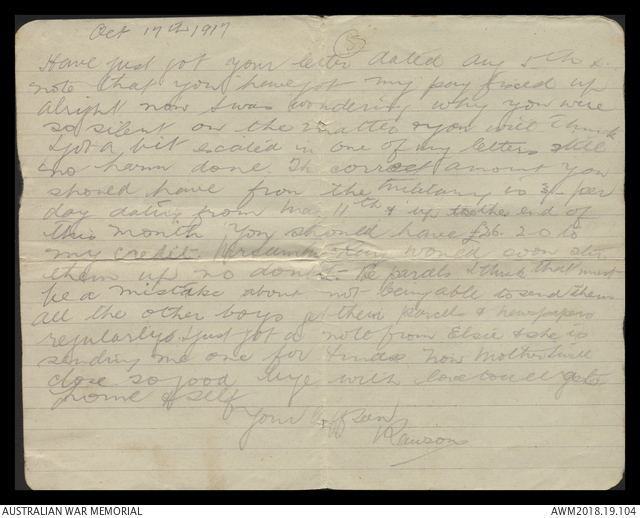 Oct 17th 1917
(3)
Have just got your letter dated Aug 5th &
note that you have got my pay fixed up
alright now I was wondering why you were
so silent on the matter & you will think
I got a bit excited in one of my letters still
no harm done. The correct amount you
should have from the Military is 3/- per
day dating from May 11th & up to the end of
this month You should have £36.2.0 to
my credit. would soon stir
them up no doubt Re parcels I think that must
be a mistake about not being able to send them
all the other boys get their parcels & newspapers
regularly. Just got a note from Elsie & she is
sending me one for Xmas. Now Mother I will
close so good bye with love to all at
home & self
Your son
Rawson
AUSTRALIAN WAR MEMORIAL
AWM2018.19.104